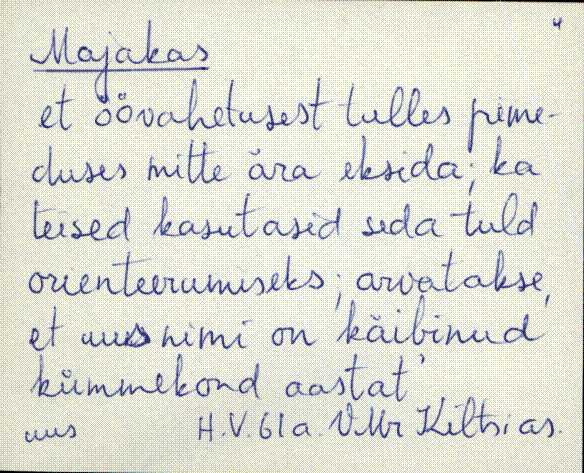 4
Majakas
et öövahetusest tulles pime-
duses mitte ära eksida; ka
teised kasutasid seda tuld
orienteerumiseks; arvatakse,
et uus nimi on käibinud
kümmekond aastat
uus H.V. 61 a. VMr Kiltsi as.